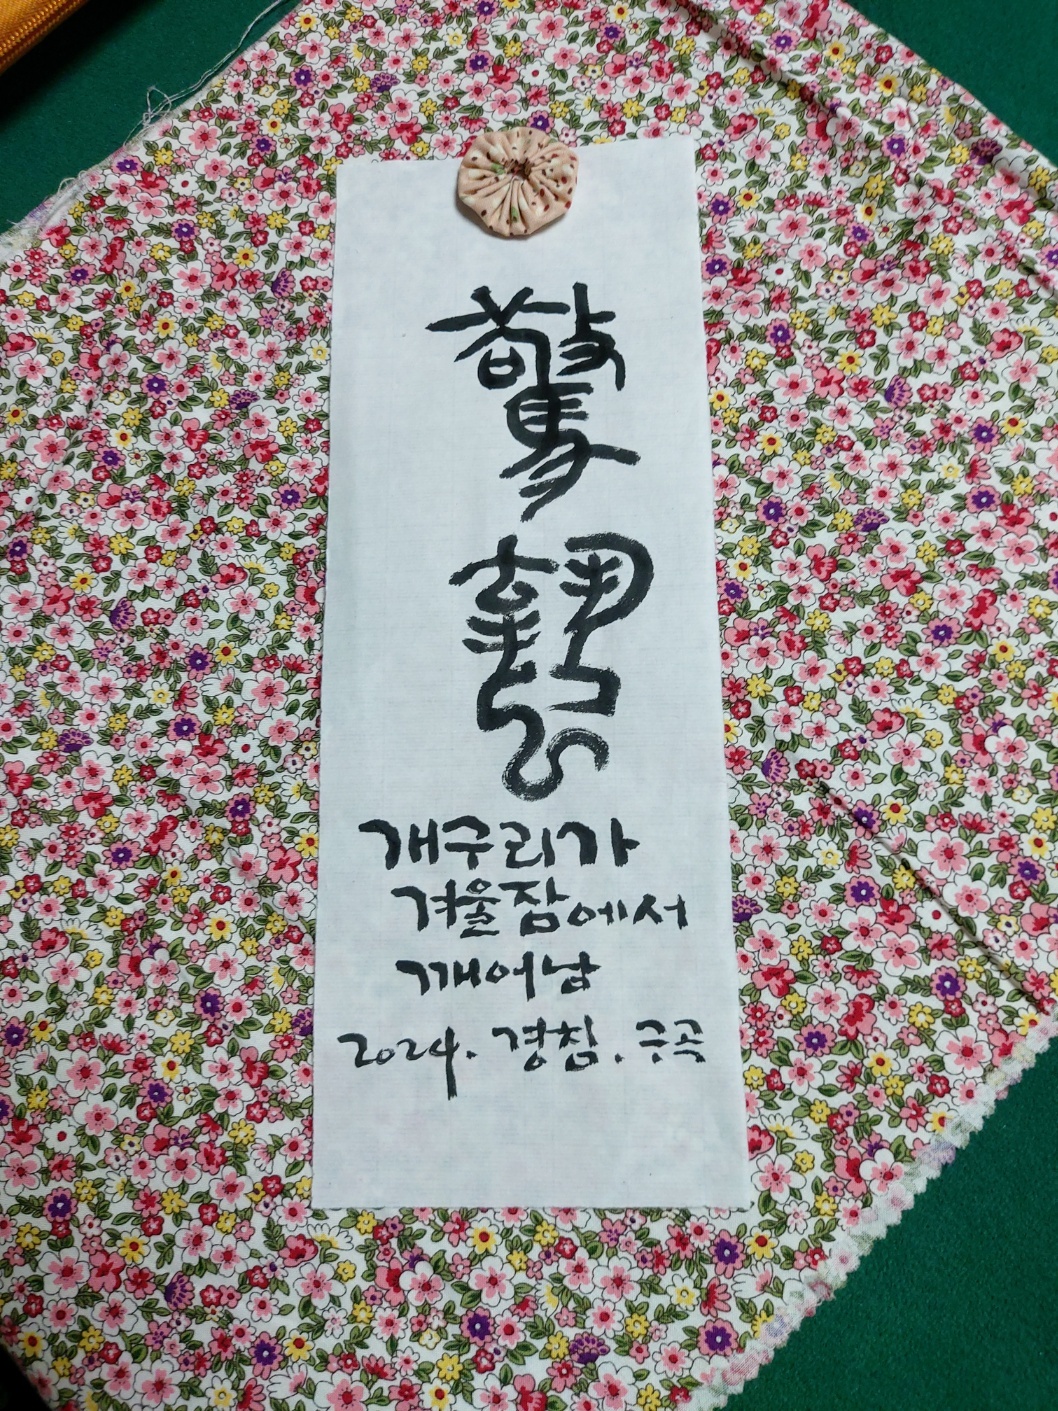 驚
蟄
개구리가
겨울잠에서
깨어남
2024. 경칩. 구곡